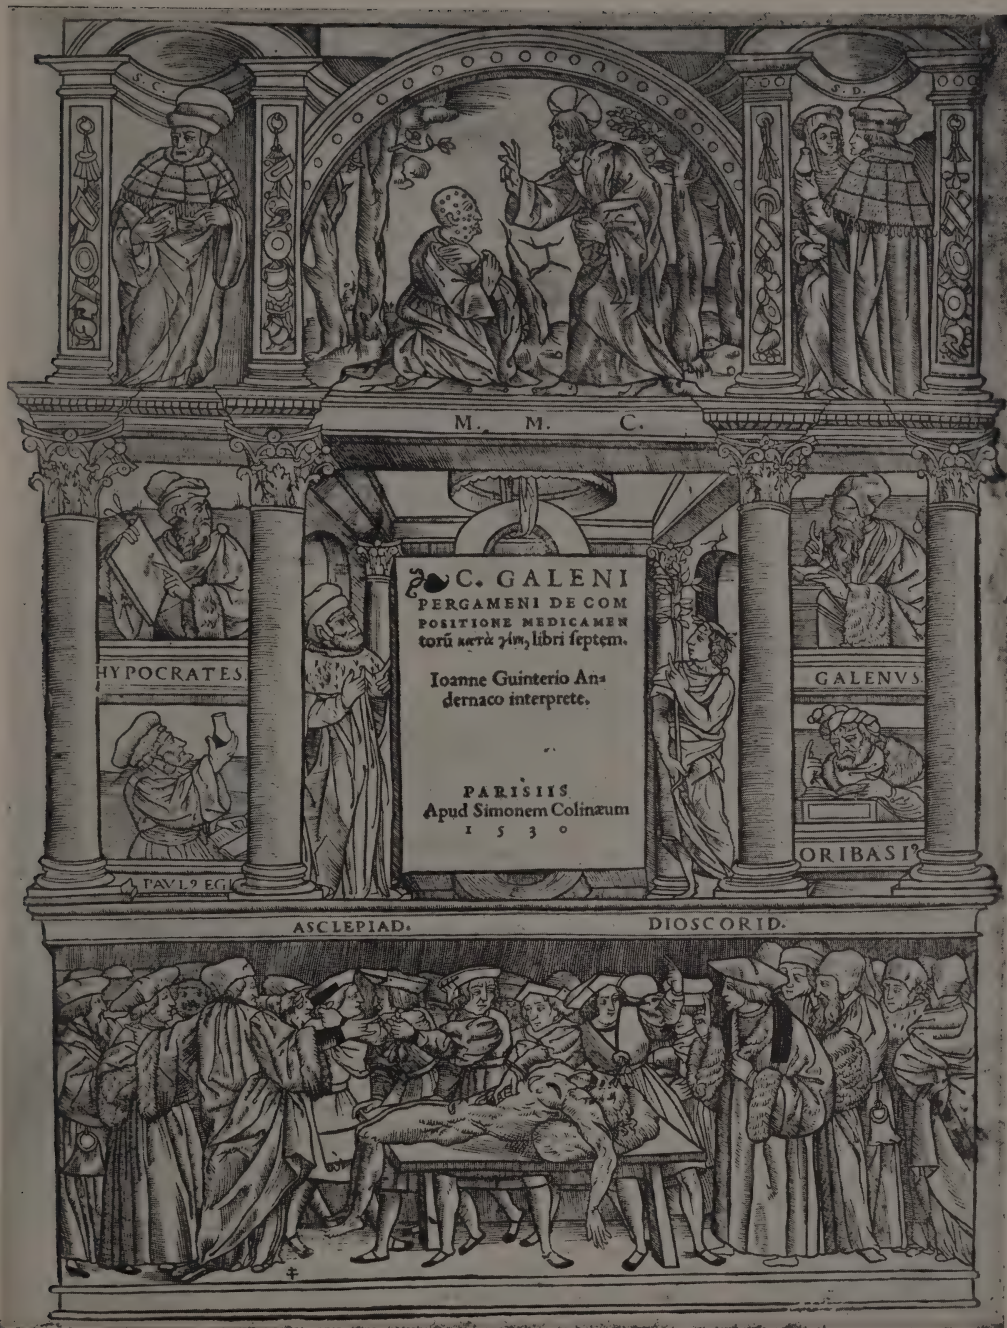 S. C.
S. D.
M. M. C.
HYPOCRATES.
GALENVS.
C. GALENI
PERGAMENI DE COM
POSITIONE MEDICAMEN
torū κατὰ γένη, libri septem.
Ioanne Guinterio An-
dernaco interprete.
PARISIIS
Apud Simonem Colinæum
1530
PAVLꝰ EGI
ORIBASIꝰ
ASCLEPIAD. DIOSCORID.